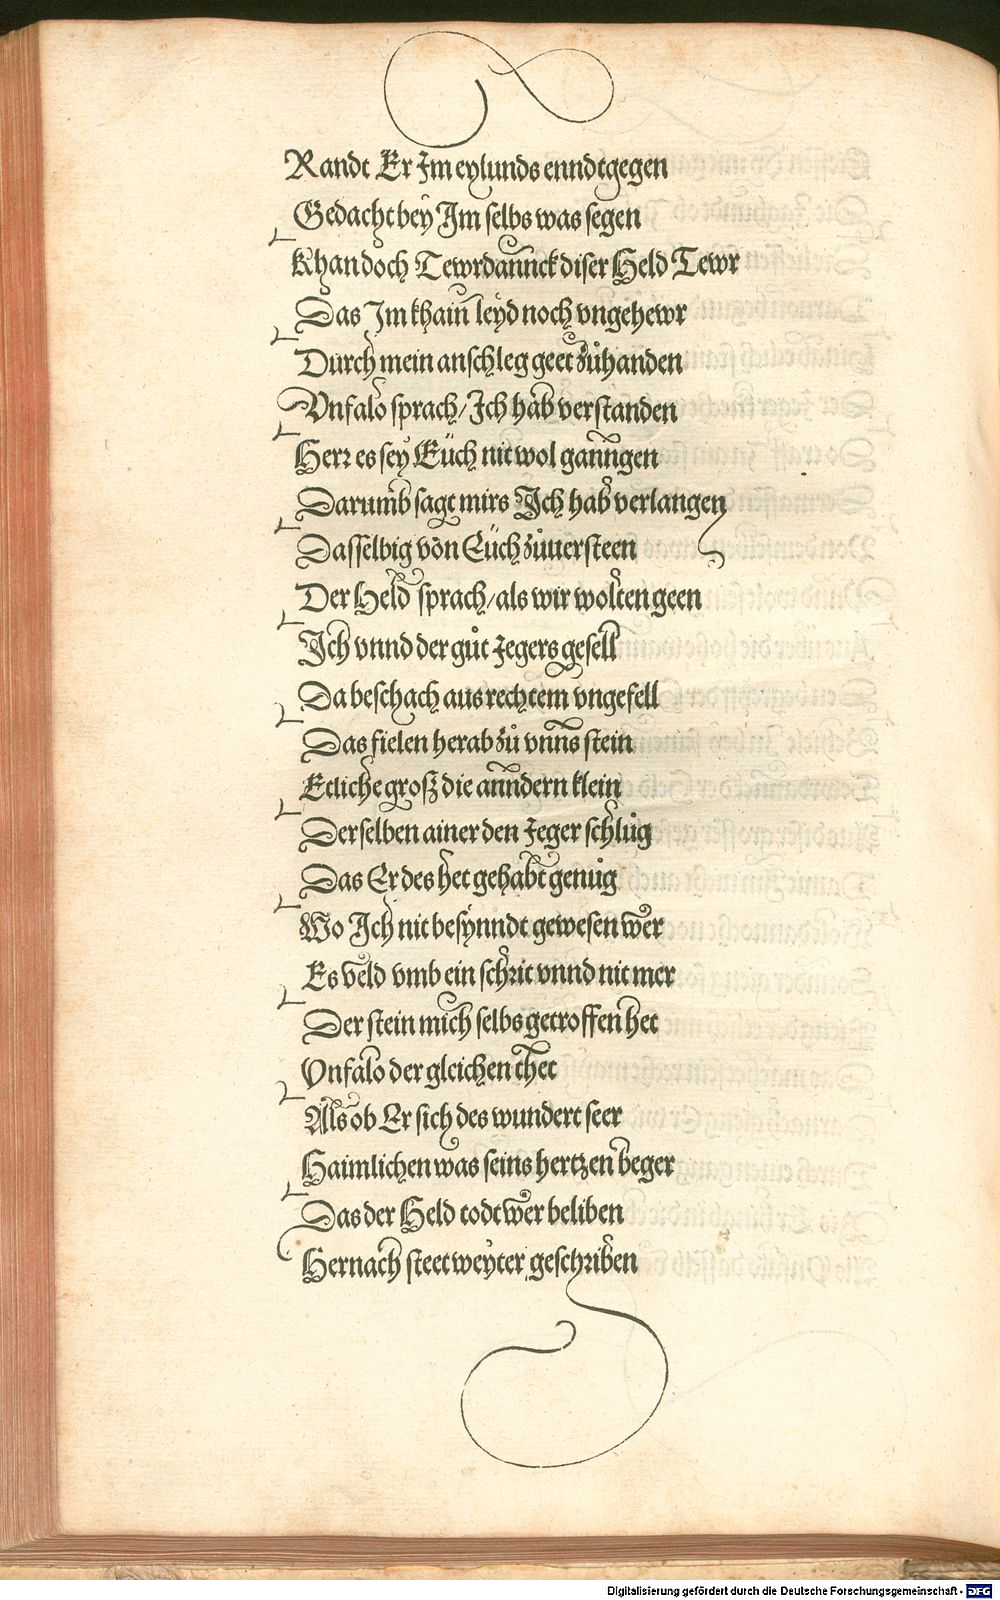 Randt Er Im eylunds enndtgegen
Gedacht bey Im selbs was segen
Khan doch Tewrdannck diser Held Tewr
Das Im khain leyd noch vngehewr
Durch mein anschleg geet zůhanden
Vnfalo sprach/ Ich hab verstanden
Herr es sey Eüch nit wol ganngen
Darumb sagt mirs Ich hab verlangen
Dasselbig von Eüch zůuersteen
Der Held sprach/ als wir wolten geen
Ich vnnd der gůt Jegers gesell
Da beschach aus rechtem vngefell
Das fielen herab zů vnns stein
Etliche groß die anndern klein
Derselben ainer den Jeger schlůg
Das Er des het gehabt genůg
Wo Ich nit besynndt gewesen wer
Es veld vmb ein schrit vnnd nit mer
Der stein mich selbs getroffen het
Vnfalo der gleichen thet
Als ob Er sich des wundert seer
Haimlichen was seins hertzen beger
Das der Held todt wer beliben
Hernach steet weyter geschriben
Digitalisierung gefördert durch die Deutsche Forschungsgemeinschaft - DFG